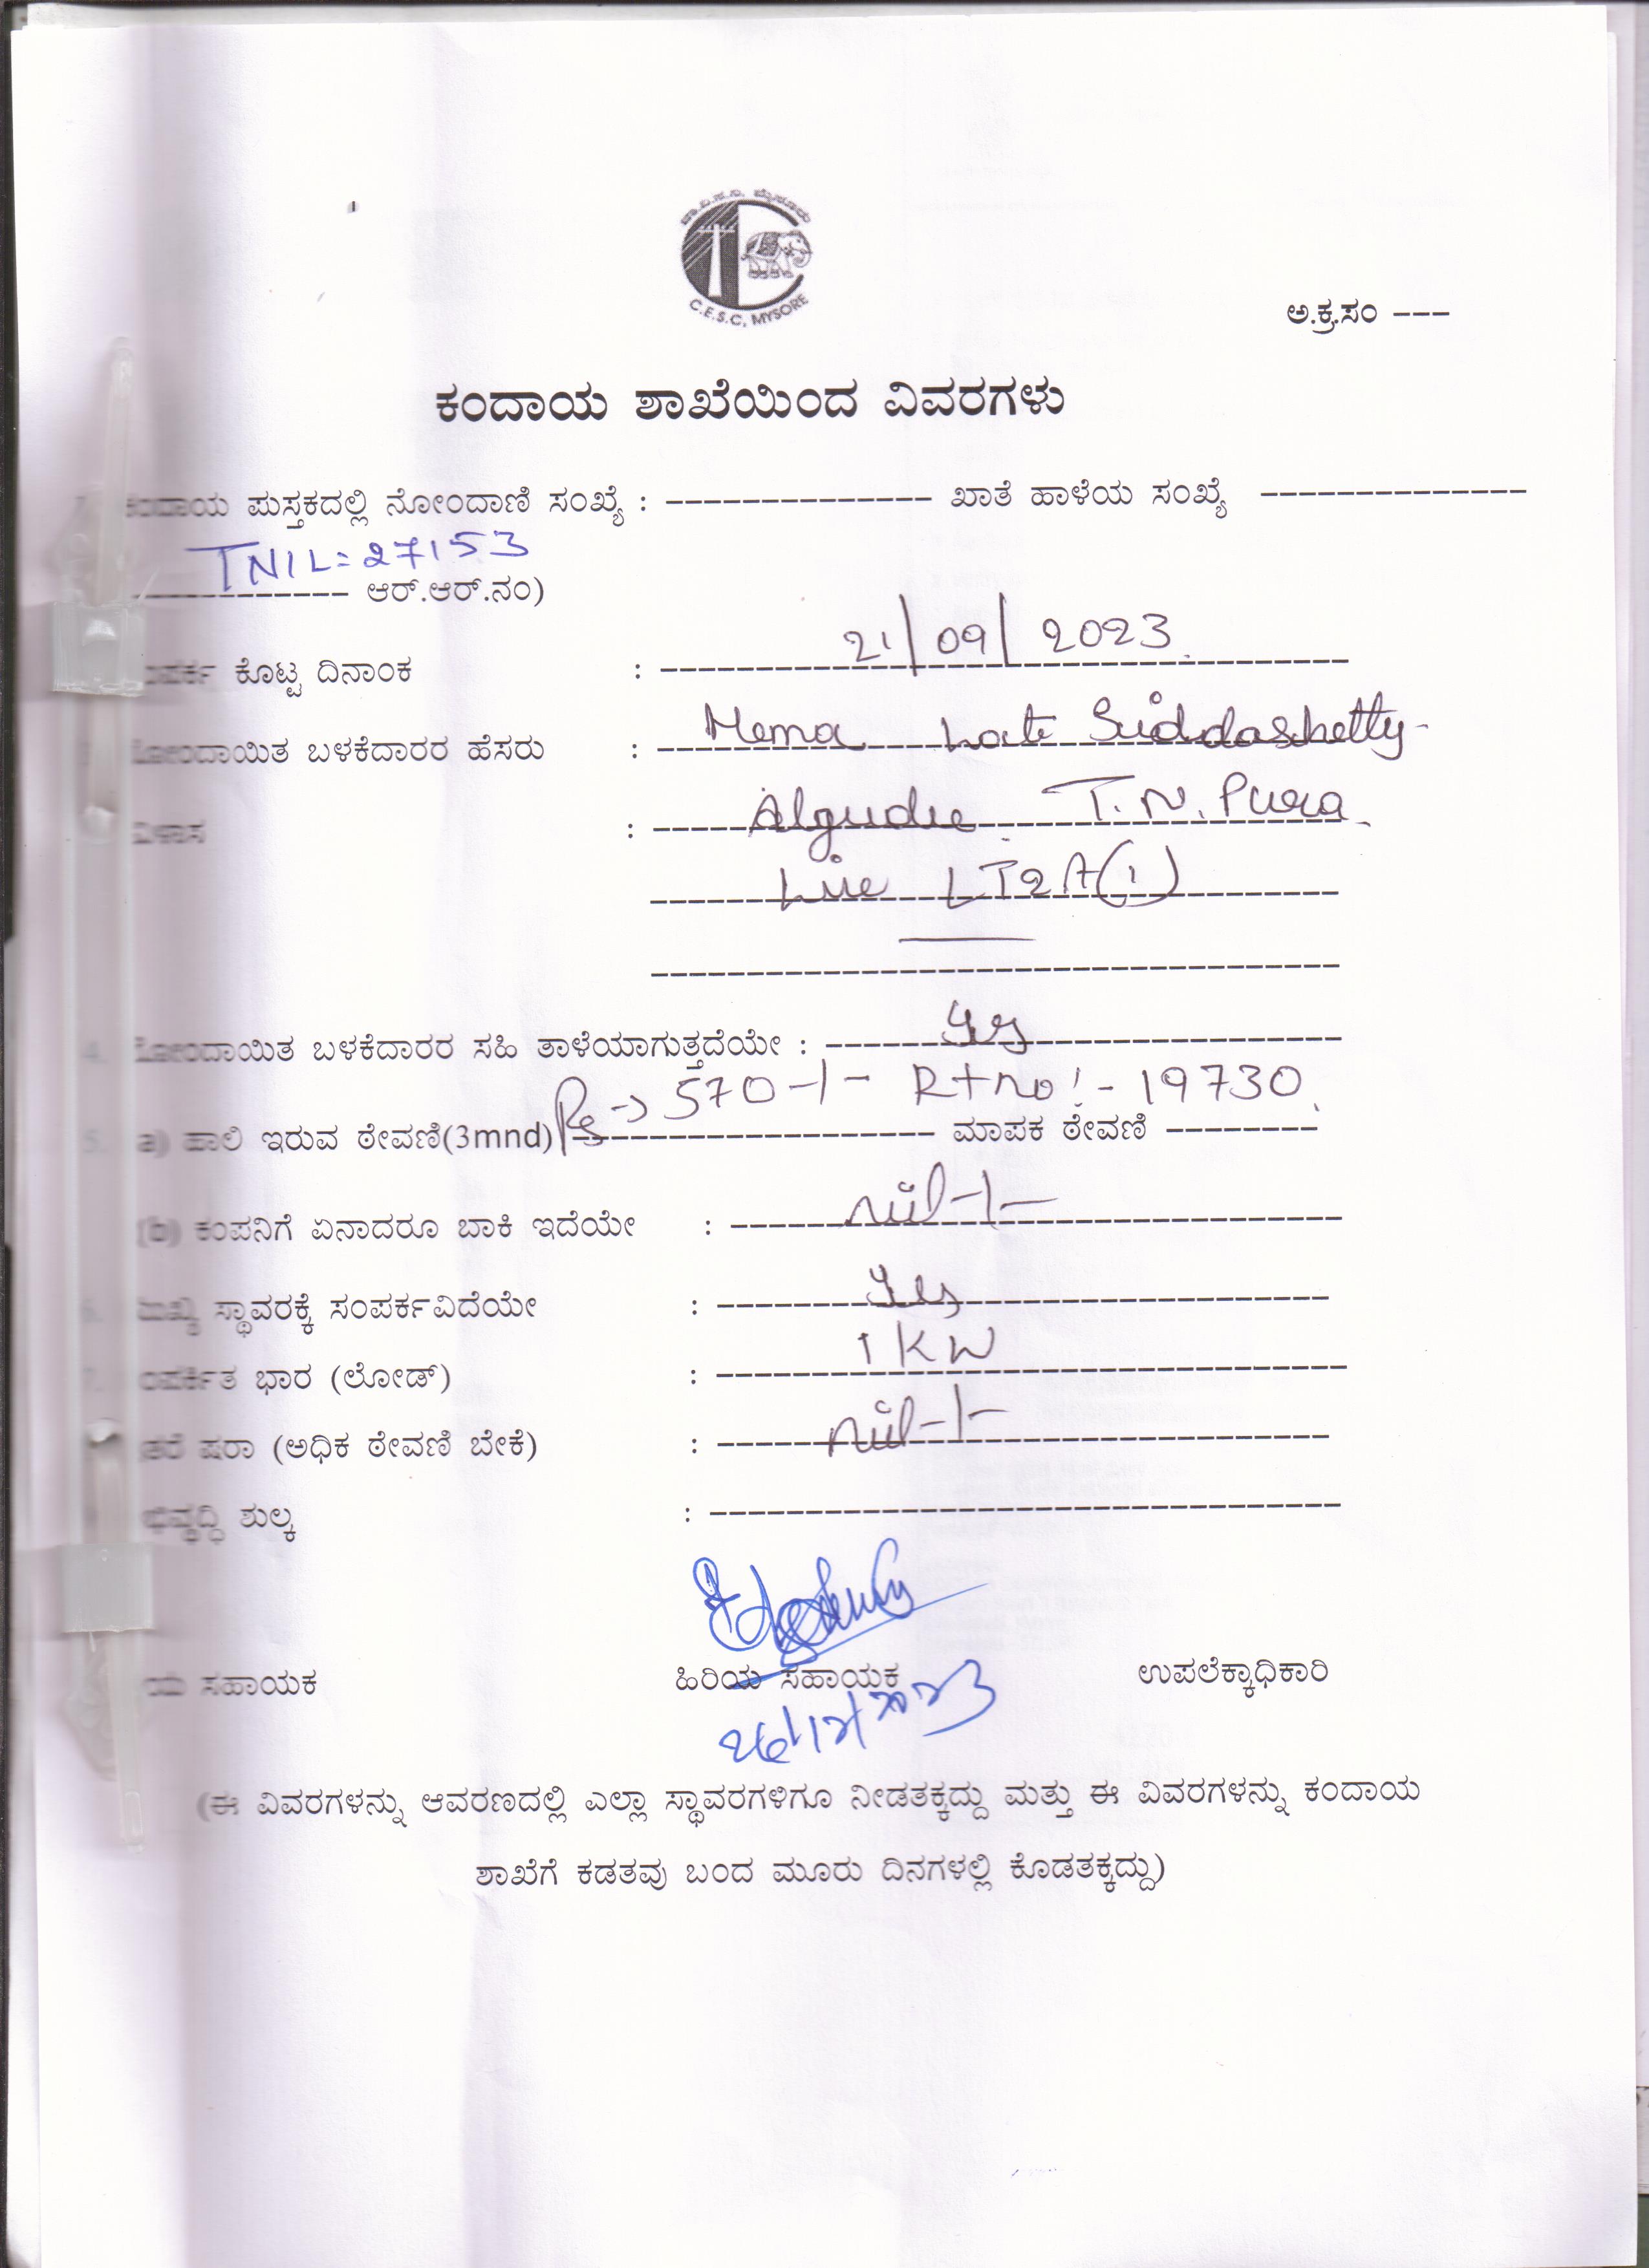 ಚಾ.ವಿ.ಸ.ನಿ. ಮೈಸೂರು
C.E.S.C, MYSORE
ಅ.ಕ್ರ.ಸಂ ---
ಕಂದಾಯ ಶಾಖೆಯಿಂದ ವಿವರಗಳು
ಕಂದಾಯ ಪುಸ್ತಕದಲ್ಲಿ ನೋಂದಾಣಿ ಸಂಖ್ಯೆ : -------------- ಖಾತೆ ಹಾಳೆಯ ಸಂಖ್ಯೆ --------------
TNIL= 27153
------------ ಆರ್.ಆರ್.ನಂ)
ಕೊಟ್ಟ ದಿನಾಂಕ : 21/09/2023
ನೋಂದಾಯಿತ ಬಳಕೆದಾರರ ಹೆಸರು : Hema Late Siddashetty
ವಿಳಾಸ : Algudu T.N. Pura
LT2A(1)
4. ನೋಂದಾಯಿತ ಬಳಕೆದಾರರ ಸಹಿ ತಾಳೆಯಾಗುತ್ತದೆಯೇ : Yes
Rs -> 570-/- R+no:- 19730
5. a) ಹಾಲಿ ಇರುವ ಠೇವಣಿ(3mnd) -------------------- ಮಾಪಕ ಠೇವಣಿ --------
(b) ಕಂಪನಿಗೆ ಏನಾದರೂ ಬಾಕಿ ಇದೆಯೇ : nil-/-
ಸ್ಥಾವರಕ್ಕೆ ಸಂಪರ್ಕವಿದೆಯೇ : Yes
7. ಭಾರ (ಲೋಡ್) : 1 KW
ಷರಾ (ಅಧಿಕ ಠೇವಣಿ ಬೇಕೆ) : nil-/-
ಶುಲ್ಕ : ------------------------------------
ಸಹಾಯಕ ಹಿರಿಯ ಸಹಾಯಕ ಉಪಲೆಕ್ಕಾಧಿಕಾರಿ
26/12/2023
(ಈ ವಿವರಗಳನ್ನು ಆವರಣದಲ್ಲಿ ಎಲ್ಲಾ ಸ್ಥಾವರಗಳಿಗೂ ನೀಡತಕ್ಕದ್ದು ಮತ್ತು ಈ ವಿವರಗಳನ್ನು ಕಂದಾಯ
ಶಾಖೆಗೆ ಕಡತವು ಬಂದ ಮೂರು ದಿನಗಳಲ್ಲಿ ಕೊಡತಕ್ಕದ್ದು)